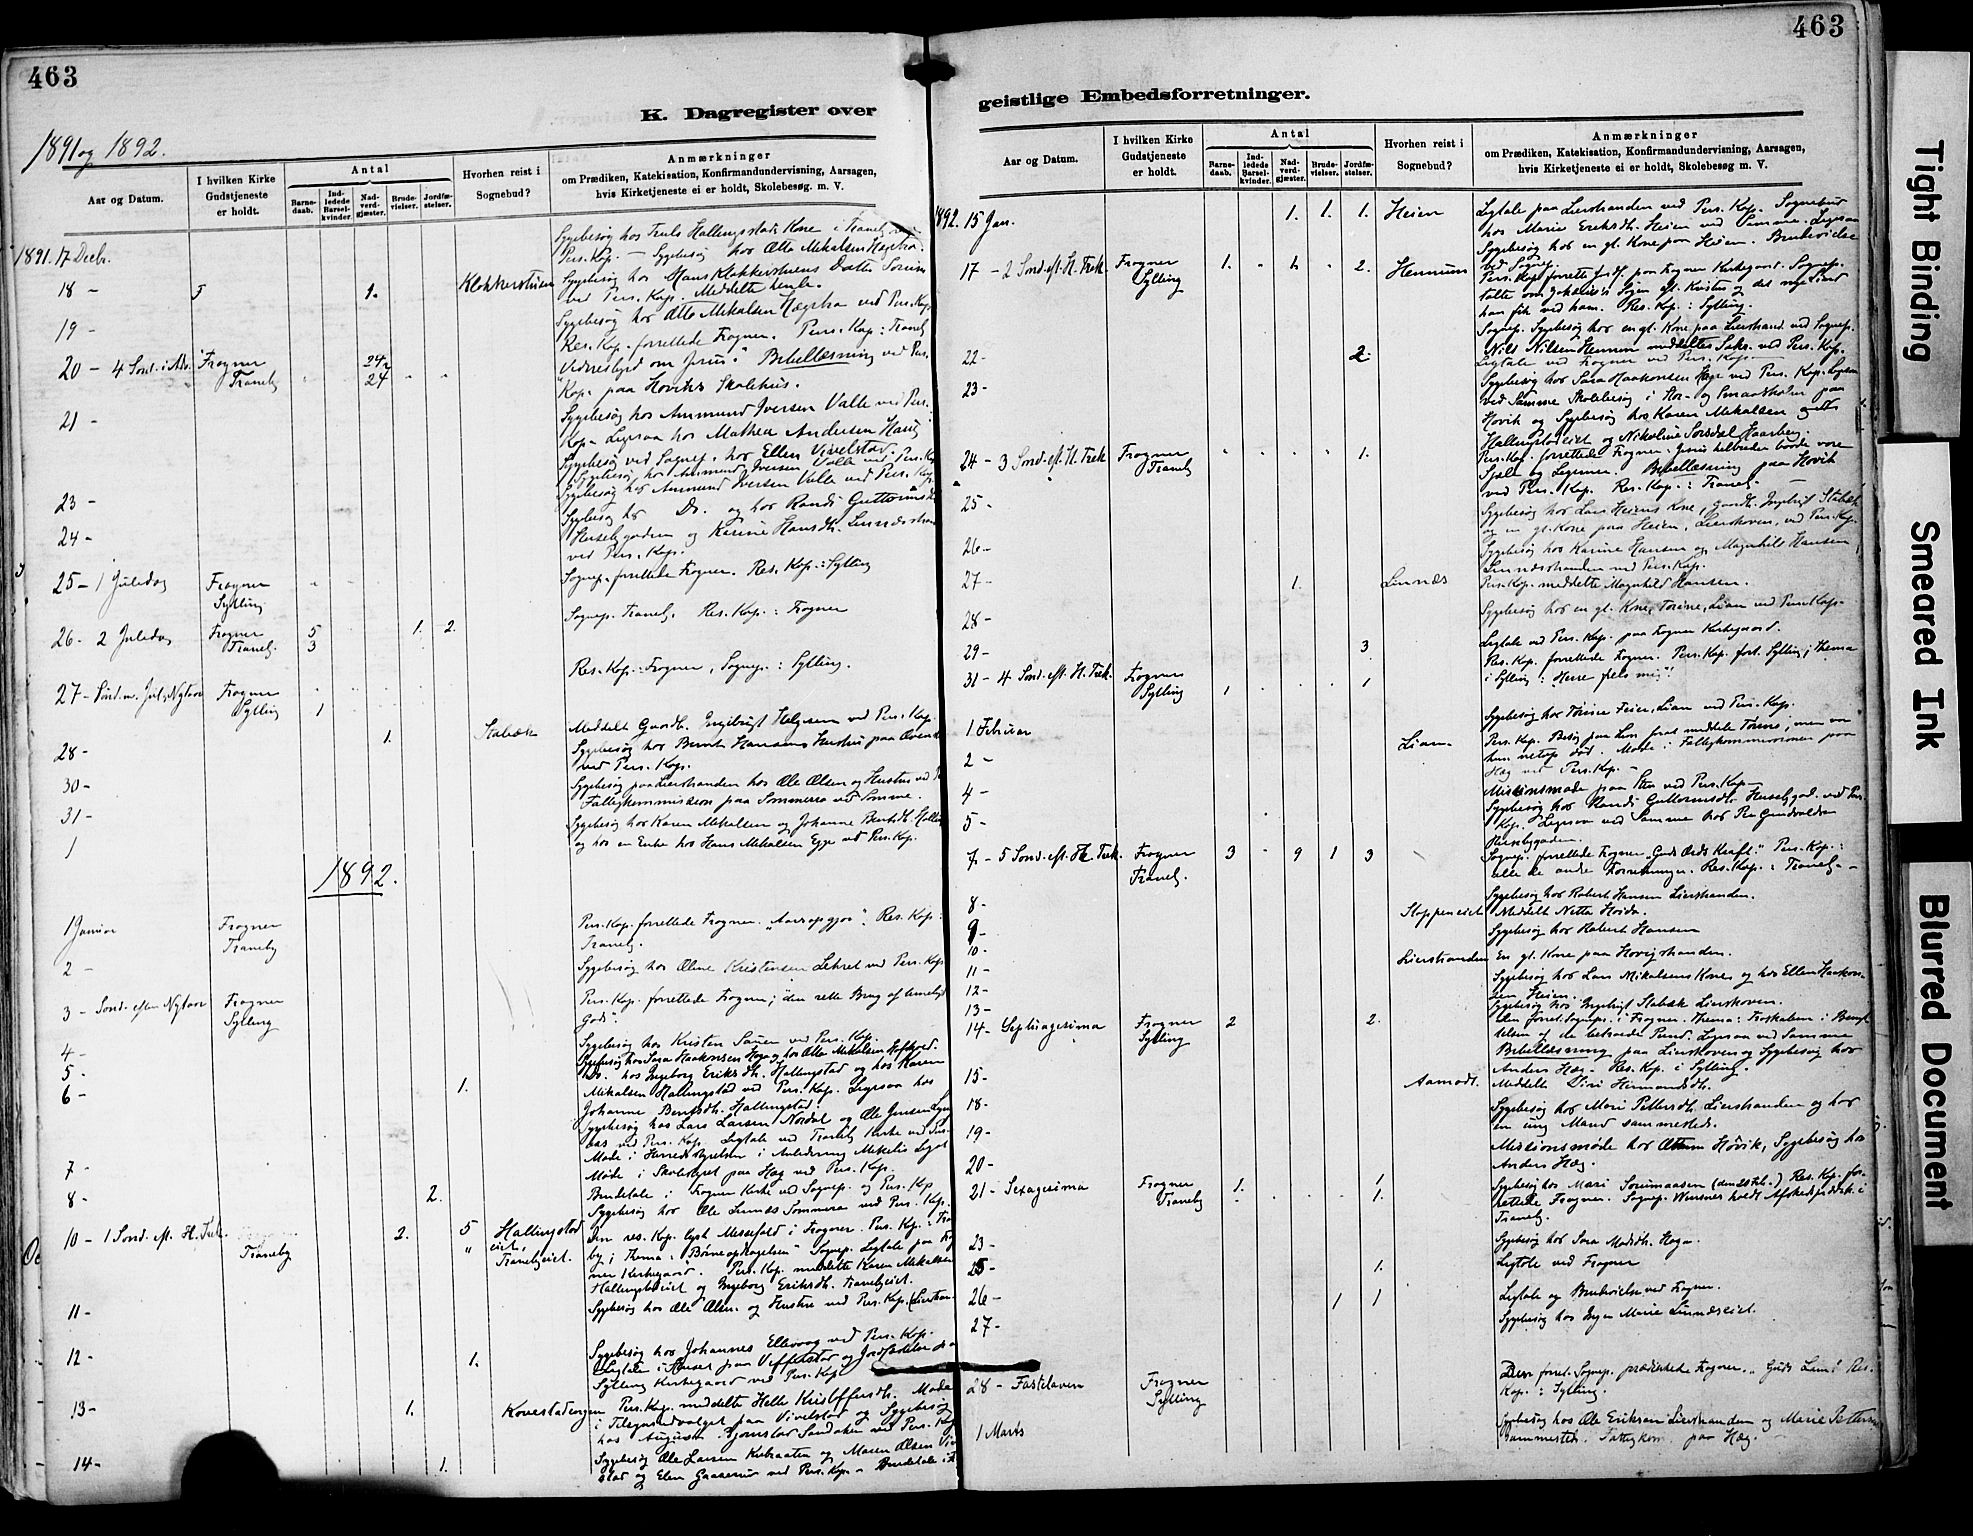 463
K. Dagregister over
1891 og 1892.
Aar og Datum.
I hvilken Kirke Gudstjeneste er holdt.
Antal
Barne-daab.
Ind-ledede Barsel-kvinder.
Nad-verd-gjæster.
Brude-vielser.
Jordfæ-stelser.
Hvorhen reist i Sognebud?
Anmærkninger
om Prædiken, Katekisation, Konfirmandundervisning, Aarsagen,
hvis Kirketjeneste ei er holdt, Skolebesøg m. V.
1891. 17 Decbr.
Sygebesøg hos Truls Hallingstads Kone i Tranby
Pers. Kap. — Sygebesøg hos Otto Mikalsen Hægstra.
18 - 1. Klokkerstuen Sygebesøg hos Hans Klokkerstuens Datter
ved Pers. Kap. Meddelte hende.
19 -
Sygebesøg hos Otto Mikalsen Hægstra ved Pers. Kap.
Res. Kap. forrettede Frogner. Pers. Kap: Tranby
20 - 4 Sönd. i Adv. Frogner 24
Tranby 24
Vidnesbyrd om Jesus." Bibellæsning ved Pers.
Kap. paa Hoviks Skolehus.
21 -
Sygebesøg hos Ammund Iversen Valle ved Pers.
Kap. Ligesaa hos Mathea Andersen
Sygebesøg ved Sognep. hos Ellen Vivelstad.
Sygebesøg hos Ammund Iversen Valle ved Pers. Kap.
23 -
Sygebesøg hos Do. og hos Randi Guttormsd.
24 -
og Karine Hansdh. Linnæsstranden
ved Pers. Kap.
25 - 1 Juledag Frogner
Sylling
Sognep. forrettede Frogner. Res. Kap.: Sylling
26 - 2 Juledag Frogner 5 1. 2.
Tranby. 3
Sognep. Tranby. Res. Kap.: Frogner
27 - Sönd. m. Jul. Nytaar Frogner
Sylling 1
Res. Kap.: Frogner, Sognep.: Sylling.
28 - 1. Stabæk
Meddelt Gaardb. Engebrigt Helgesen ved Pers. Kap.
Sygebesøg hos Bernt Hansens Hustru paa
ved Pers. Kap.
30 -
Sygebesøg paa Lierstranden hos Ole Olsen og Hustru ved
Fattigkommission paa Sommerro ved Samme.
31 -
Sygebesøg hos Karen Mikalsen og Johanne Berntsdh.
og hos en Enke hos Hans Mikalsen Egge ved Pers. Kap.
1
1892.
1 Januar Frogner
Tranby
Pers. Kap. forrettede Frogner. „Aarsopgjør". Res. Kap:
Tranby.
2 -
Sygebesøg hos Oline Kristensen ved Pers. Kap.
3 - Sönd. efter Nytaar Frogner
Sylling
Pers. Kap. forrettede Frogner; den rette Brug af timeligt
Gods".
4 -
Sygebesøg hos Kristen ved Pers. Kap.
5 -
Sygebesøg hos Sara Haakonsen Høge og hos Otto Mikalsen
6 - 1.
Do. hos Ingeborg Eriksdh. Hallingstad og hos Karen
Mikalsen Hallingstad ved Pers. Kap. Ligesaa hos
Johanne Berntsdh. Hallingstad.
Sygebesøg hos Lars Larsen Nordal og Ole Jensen
ved Pers. Kap. Ligtale ved Tranby Kirke ved Pers.
7 -
Møde i Herredsstyrelsen i Anledning
Møde i Skolestyret paa Hæg ved Pers. Kap.
8 - 2.
Brudetale i Frogner Kirke ved Sognep. og Pers. Kap
Sygebesøg hos Ole Lunds Sommerro ved Pers. Kap.
10 - 1 Sönd. eft. H. 3 K. Frogner 2. 5 Hallingstad
Tranby „ eiet, Tranbyeiet.
Den res. Kap. lyst Messefald i Frogner. Pers. Kap.: Tran
by; Thema: Børneopdragelsen" Sognep. Ligtale paa Frog
ner Kirkegaard. Pers. Kap. meddelte Karen Mikalsen
Hallingstadeiet og Ingeborg Eriksdh. Tranbyeiet.
11 -
Sygebesøg hos Ole Olsen og Hustru ved Pers. Kap. (Lierstran
12 - 1.
Sygebesøg hos Johannes Ellevog ved Pers. Kap.
Ligtale i Huset paa Viffelstad og Jordfæstelse paa
Sylling Kirkegaard ved Pers. Kap.
13 - 1. Kovestadengen
Pers. Kap. meddelte Helle Kristoffersdh. Møde
i Tilsynsudvalget paa Vivelstad og Sygebesøg
hos August ved Pers. Kap
14 - 1.
Sygebesøg Ole Larsen og Maren Olsen Viv
stad og Elen ved Pers. Kap. Brudetale i
463
geistlige Embedsforretninger.
Aar og Datum.
I hvilken Kirke Gudstjeneste er holdt.
Antal
Barne-daab.
Ind-ledede Barsel-kvinder.
Nad-verd-gjæster.
Brude-vielser.
Jordfæ-stelser.
Hvorhen reist i Sognebud?
Anmærkninger
om Prædiken, Katekisation, Konfirmandundervisning, Aarsagen,
hvis Kirketjeneste ei er holdt, Skolebesøg m. V.
1892. 15 Jan. 1. 1. 1. Heien
Ligtale paa Lierstranden ved Pers. Kap. Sognebud
hos Marie Eriksdh. Heien ved Samme. Ligesaa
Sygebesøg hos en gl. Kone paa Heien. Brudevielse
ved Sognep.
17 - 2 Sönd. eft. H. 3 K. Frogner 1. 2. Hennum
Sylling
Pers. Kap. forrettede paa Frogner Kirkegaard. Sognep.
talte om Syn af Kristus og det nye Sind
han fik ved ham. Res. Kap.: Sylling.
Sognep. Sygebesøg hos en gl. Kone paa Lierstrand. ved Sognep.
22 - 2
Nils Nilsen Hennum meddeltes Sakr. ved Pers. Kap.
Ligtale ved Frogner ved Pers. Kap.
23 -
Sygebesøg hos Sara Haakonsen Høge ved Pers. Kap. Ligesaa
ved Samme Skolebesøg i Stor- og Smaaskolen paa
Hovik og Sygebesøg hos Karen Mikalsen
Hallingstadeiet og Nikoline
24 - 3 Sönd. eft. H. 3 K. Frogner 1.
Tranby
Pers. Kap. forrettede Frogner: Jesus helbreder baade vore
Sjæle og Legemer. Bibellæsning paa Hovik
ved Pers. Kap. Res. Kap.: Tranby.
25 -
Sygebesøg hos Lars Heiens Kone, Gaardb. Ingebrigt Stabæk
og en gl. Kone paa Heien, Lierskoven, ved Pers. Kap.
26 -
Sygebesøg hos Karine Hansen og Magnhild Hansen
Linnæsstranden ved Pers. Kap.
27 - 1. Linnæs
Pers. Kap. meddelte Magnhild Hansen.
28 -
Sygebesøg hos en gl. Kone, Torine, Lian ved Pers. Kap.
29 - 3
Ligtale ved Pers. Kap. paa Frogner Kirkegaard.
31 - 4 Sönd. eft. H. 3 K. Frogner
Sylling 1 1
Res. Kap. forrettede Frogner. Pers. Kap. forr. Sylling; Thema
i Sylling: Herre frels mig!"
1 Februar
Sygebesøg hos Torine Feier, Lian ved Pers. Kap.
2 - Lian
Pers. Kap. Besøg paa Lian forat meddele Torine; men var
hun netop død. Møde i Fattigkommissionen paa
Hæg ved Pers. Kap. -
4 -
Missionsmøde paa Sten ved Pers. Kap.
5 -
Sygebesøg hos Randi Guttormsdh. ved Pers.
Kap. Ligesaa ved Samme hos
7 - 5 Sönd. eft. H. 3 K. Frogner 3 - 9 1 3
Tranby.
Sognep. forrettede Frogner „Guds Ords Kraft." Pers. Kap.:
alle de andre Forretninger. Res. Kap.: Tranby.
8 -
Sygebesøg hos Robert Hansen Lierstranden.
Stoppeneiet Meddelt Netta Hoida.
9 -
Sygebesøg hos Robert Hansen
10 - Lierstranden En gl. Kone paa Hovigstranden.
11 -
Sygebesøg hos Lars Mikalsens Kone, og hos Ellen Haakon-
sen Heien.
12 -
Sygebesøg hos Ingebrigt Stabæk Lierskoven.
13 -
14 - Septuagesima Frogner 2 2.
Sylling
Den forret. Sognep. i Frogner. Thema: Troskaben i Benyt
telsen af de betroede Pund. Ligesaa ved Samme
Bibellæsning paa Lierskoven og Sygebesøg hos
Anders Hæg. Res. Kap. i Sylling.
15 - Aamodt. Meddelt Siri Hermandsdh.
18 -
Sygebesøg hos Mari Pettersdh. Lierstranden og hos
en ung Mand sammesteds.
19 -
Missionsmøde hos Høvik, Sygebesøg hos
Anders Hæg.
20 -
21 - Sexagesima Frogner 1. 1
Tranby - 1.
Sygebesøg hos Mari Res. Kap. for-
rettede Frogner. Sognep. Wersner holdt Afskedsprædik. i
Tranby.
23 -
Sygebesøg hos Sara Madsdh. Høga.
25 - 1.
Ligtale ved Frogner
26 - 1 1
Ligtale og Brudevielse ved Frogner.
27 -
Sygebesøg hos Inger Marie Linnæseiet.
28 - Fastelavn Frogner
Sylling
Den forret. Sognep. prædikede Frogner. „Guds Lam! Res.
Kap.: Sylling.
1 Marts
Sygebesøg hos Ole Eriksen Lierstranden og Marie Petters
sammesteds. Fattigkom. paa Hæg.
Tight Binding
Smeared Ink
Blurred Document